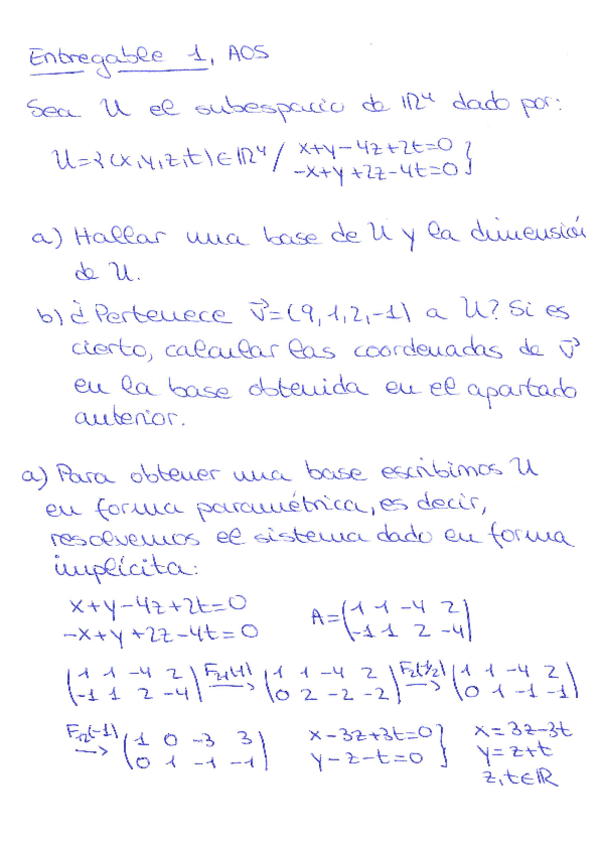 Entregable 1, AOS
Sea U el subespacio de ℝ⁴ dado por:
U={(x,y,z,t)∈ℝ⁴/ x+y-4z+2t=0
-x+y+2z-4t=0}
a) Hallar una base de U y la dimensión
de U.
b) ¿Pertenece v⃗=(9,1,2,-1) a U? Si es
cierto, calcular las coordenadas de v⃗
en la base obtenida en el apartado
anterior.
a) Para obtener una base escribimos U
en forma paramétrica, es decir,
resolvemos el sistema dado en forma
implícita:
x+y-4z+2t=0
-x+y+2z-4t=0
A=(1 1 -4 2
-1 1 2 -4)
(1 1 -4 2 F₂₁(1) (1 1 -4 2 F₂(1/2) (1 1 -4 2
-1 1 2 -4) → 0 2 -2 -2) → 0 1 -1 -1)
F₁₂(-1) (1 0 -3 3 x-3z+3t=0 x=3z-3t
→ 0 1 -1 -1) y-z-t=0} y=z+t
z,t∈ℝ